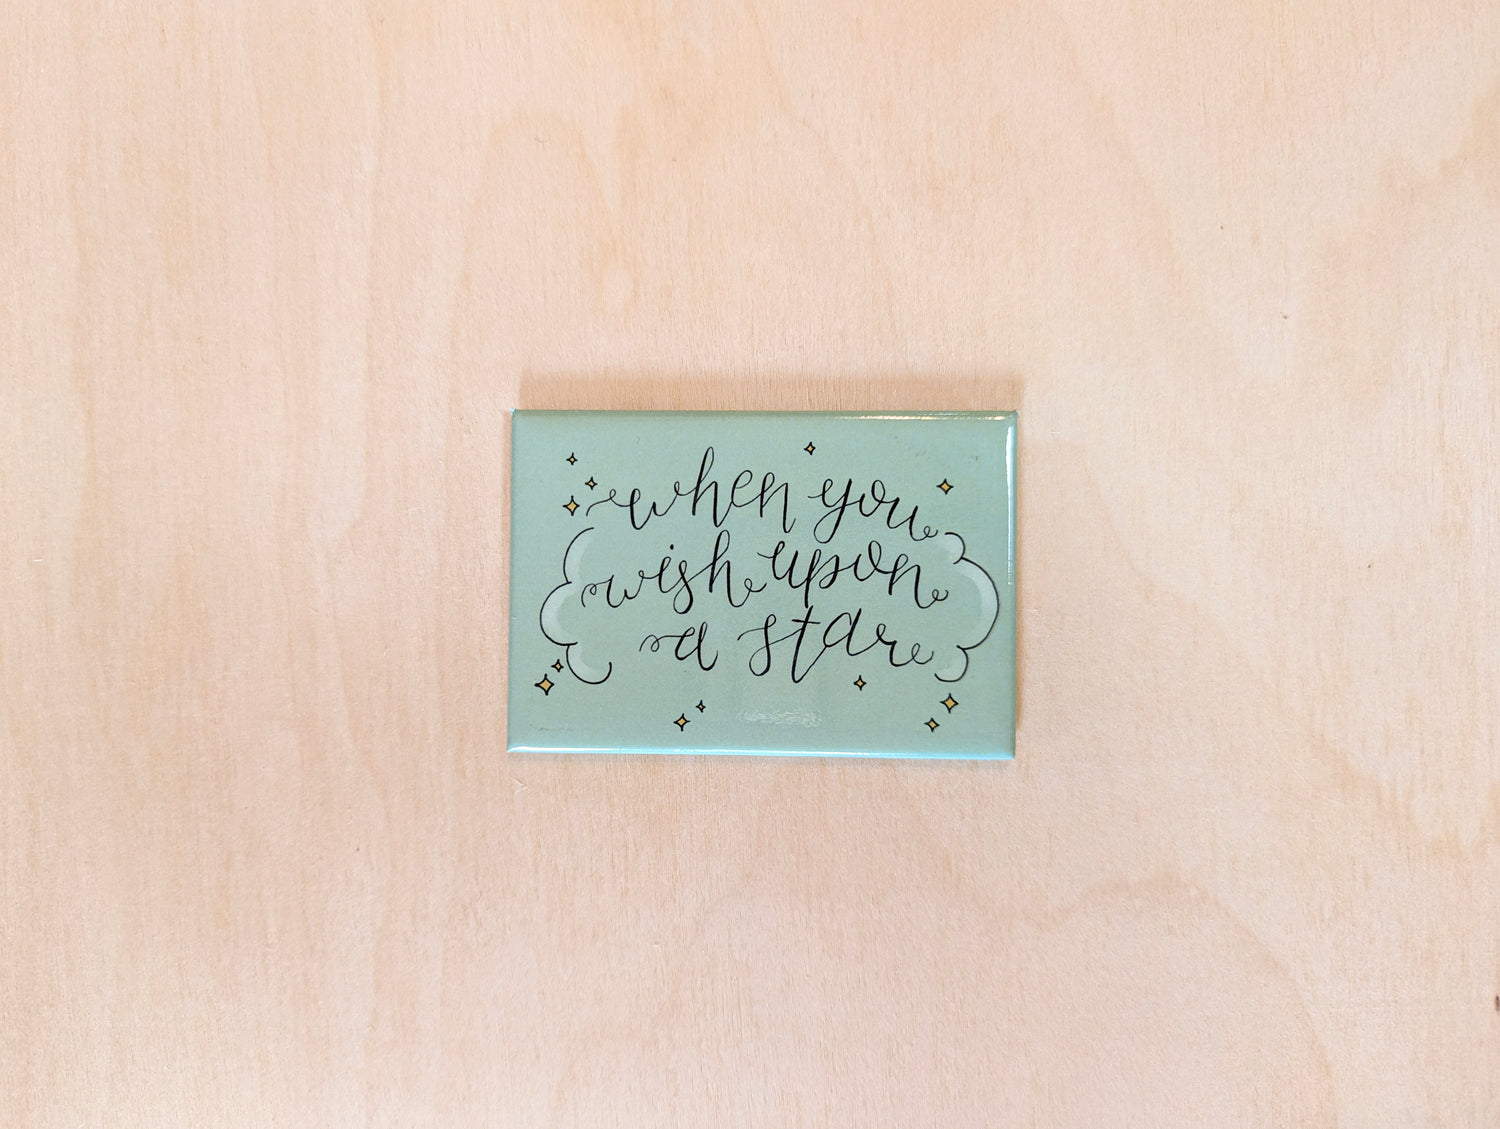 when you
wish upon
a star